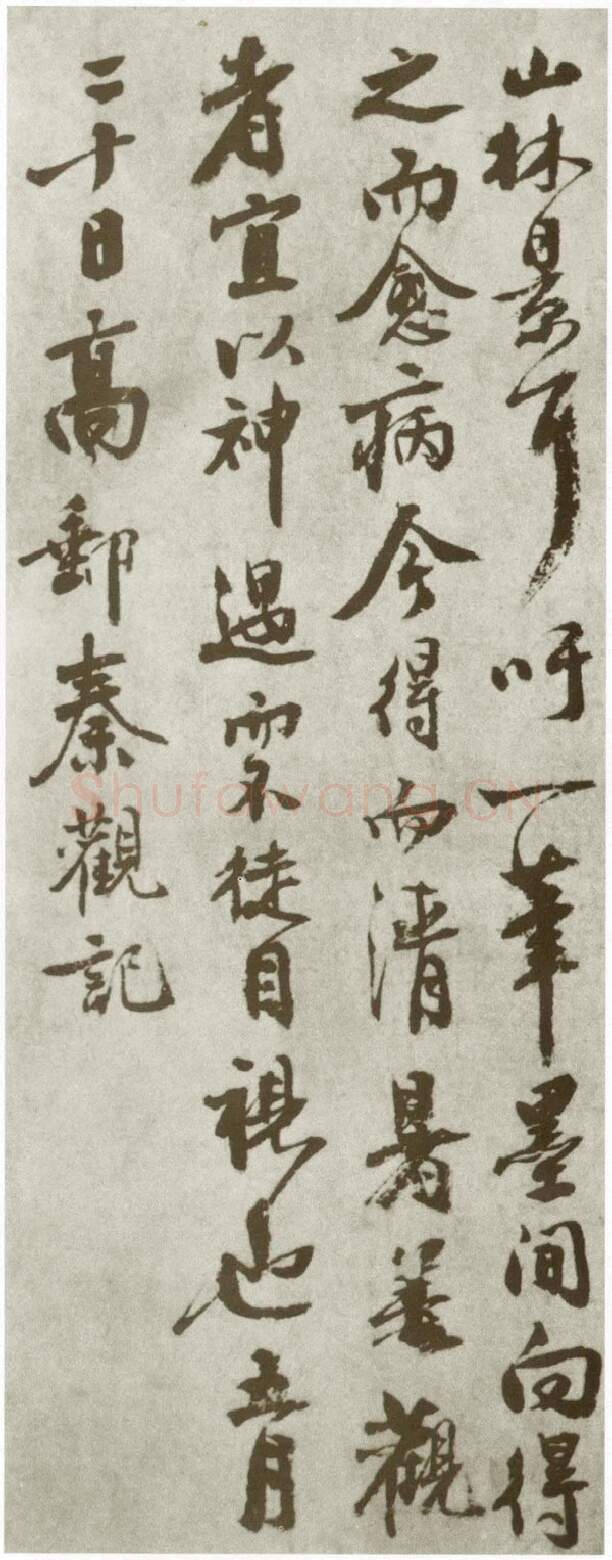 山林景耳吁一筆墨間向得
之而愈病今得而清暑善觀
者宜以神遇而不徒目視也五月
二十日高郵秦觀記
Shufawang.CN